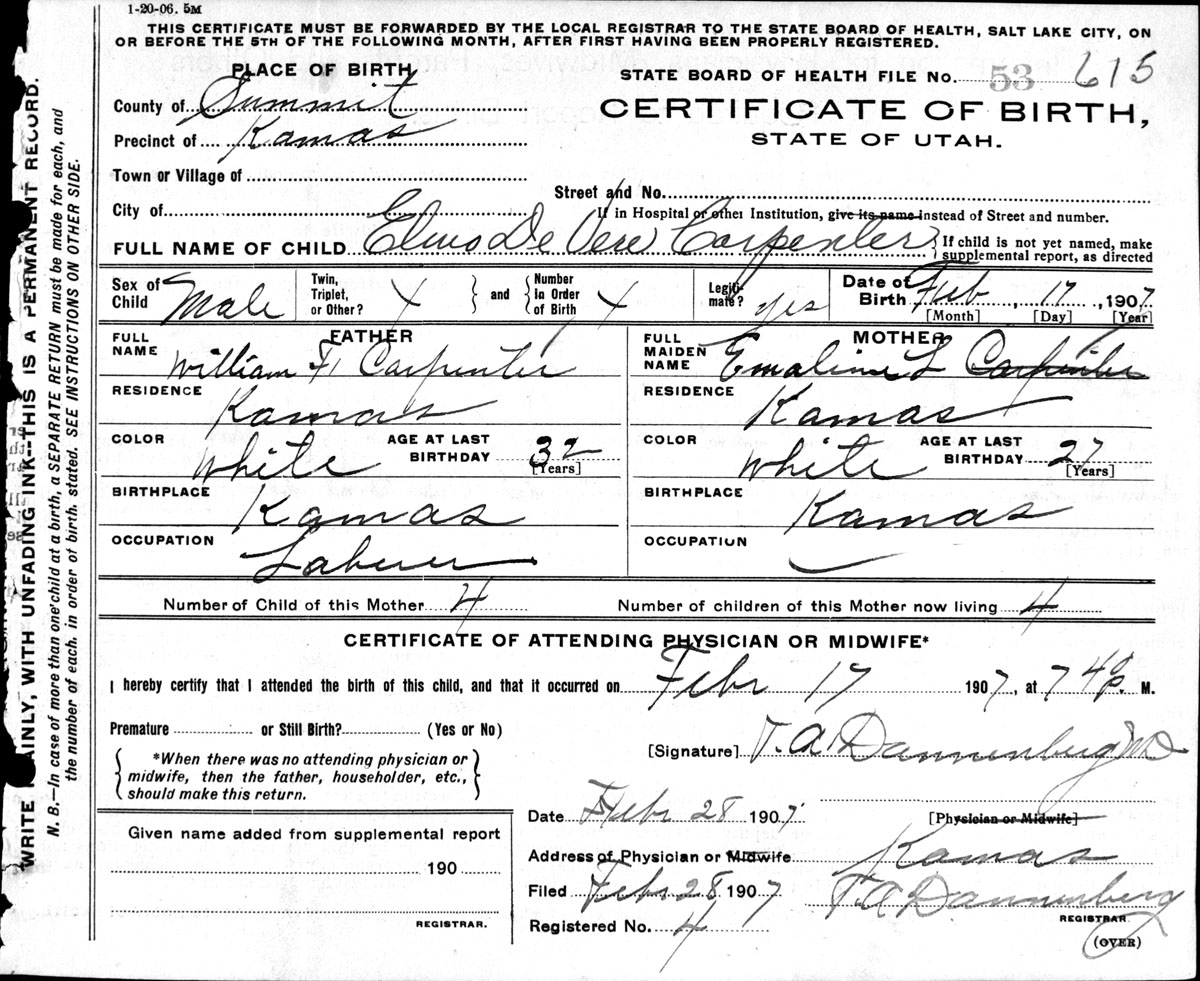 1-20-06. 5M
THIS CERTIFICATE MUST BE FORWARDED BY THE LOCAL REGISTRAR TO THE STATE BOARD OF HEALTH, SALT LAKE CITY, ON
OR BEFORE THE 5TH OF THE FOLLOWING MONTH, AFTER FIRST HAVING BEEN PROPERLY REGISTERED.
PLACE OF BIRTH
STATE BOARD OF HEALTH FILE No. 53 615
County of Summit
CERTIFICATE OF BIRTH,
Precinct of Kamas
STATE OF UTAH.
Town or Village of
Street and No.
City of
If in Hospital or other Institution, give its name instead of Street and number.
FULL NAME OF CHILD Elmo De Vere Carpenter
If child is not yet named, make
supplemental report, as directed
Sex of Child Male
Twin, Triplet, or Other? X
and
Number In Order of Birth X
Legitimate? yes
Date of Birth Feb, 17, 1907
[Month] [Day] [Year]
FATHER
FULL NAME William H Carpenter
RESIDENCE Kamas
COLOR White
AGE AT LAST BIRTHDAY 32
[Years]
BIRTHPLACE Kamas
OCCUPATION Laborer
MOTHER
FULL MAIDEN NAME Emaline L Carpenter
RESIDENCE Kamas
COLOR White
AGE AT LAST BIRTHDAY 27
[Years]
BIRTHPLACE Kamas
OCCUPATION
Number of Child of this Mother 4
Number of children of this Mother now living 4
CERTIFICATE OF ATTENDING PHYSICIAN OR MIDWIFE*
I hereby certify that I attended the birth of this child, and that it occurred on Febr 17 1907, at 7 40 P. M.
Premature or Still Birth? (Yes or No)
[Signature] T. A. Dannenberg MD
*When there was no attending physician or
midwife, then the father, householder, etc.,
should make this return.
Date Febr 28 1907
[Physician or Midwife]
Given name added from supplemental report
190
REGISTRAR.
Address of Physician or Midwife Kamas
Filed Febr 28 1907 T. A Dannenberg
REGISTRAR
Registered No. 4
(OVER)
WRITE PLAINLY, WITH UNFADING INK--THIS IS A PERMANENT RECORD.
N. B.—In case of more than one child at a birth, a SEPARATE RETURN must be made for each, and
the number of each, in order of birth, stated. SEE INSTRUCTIONS ON OTHER SIDE.